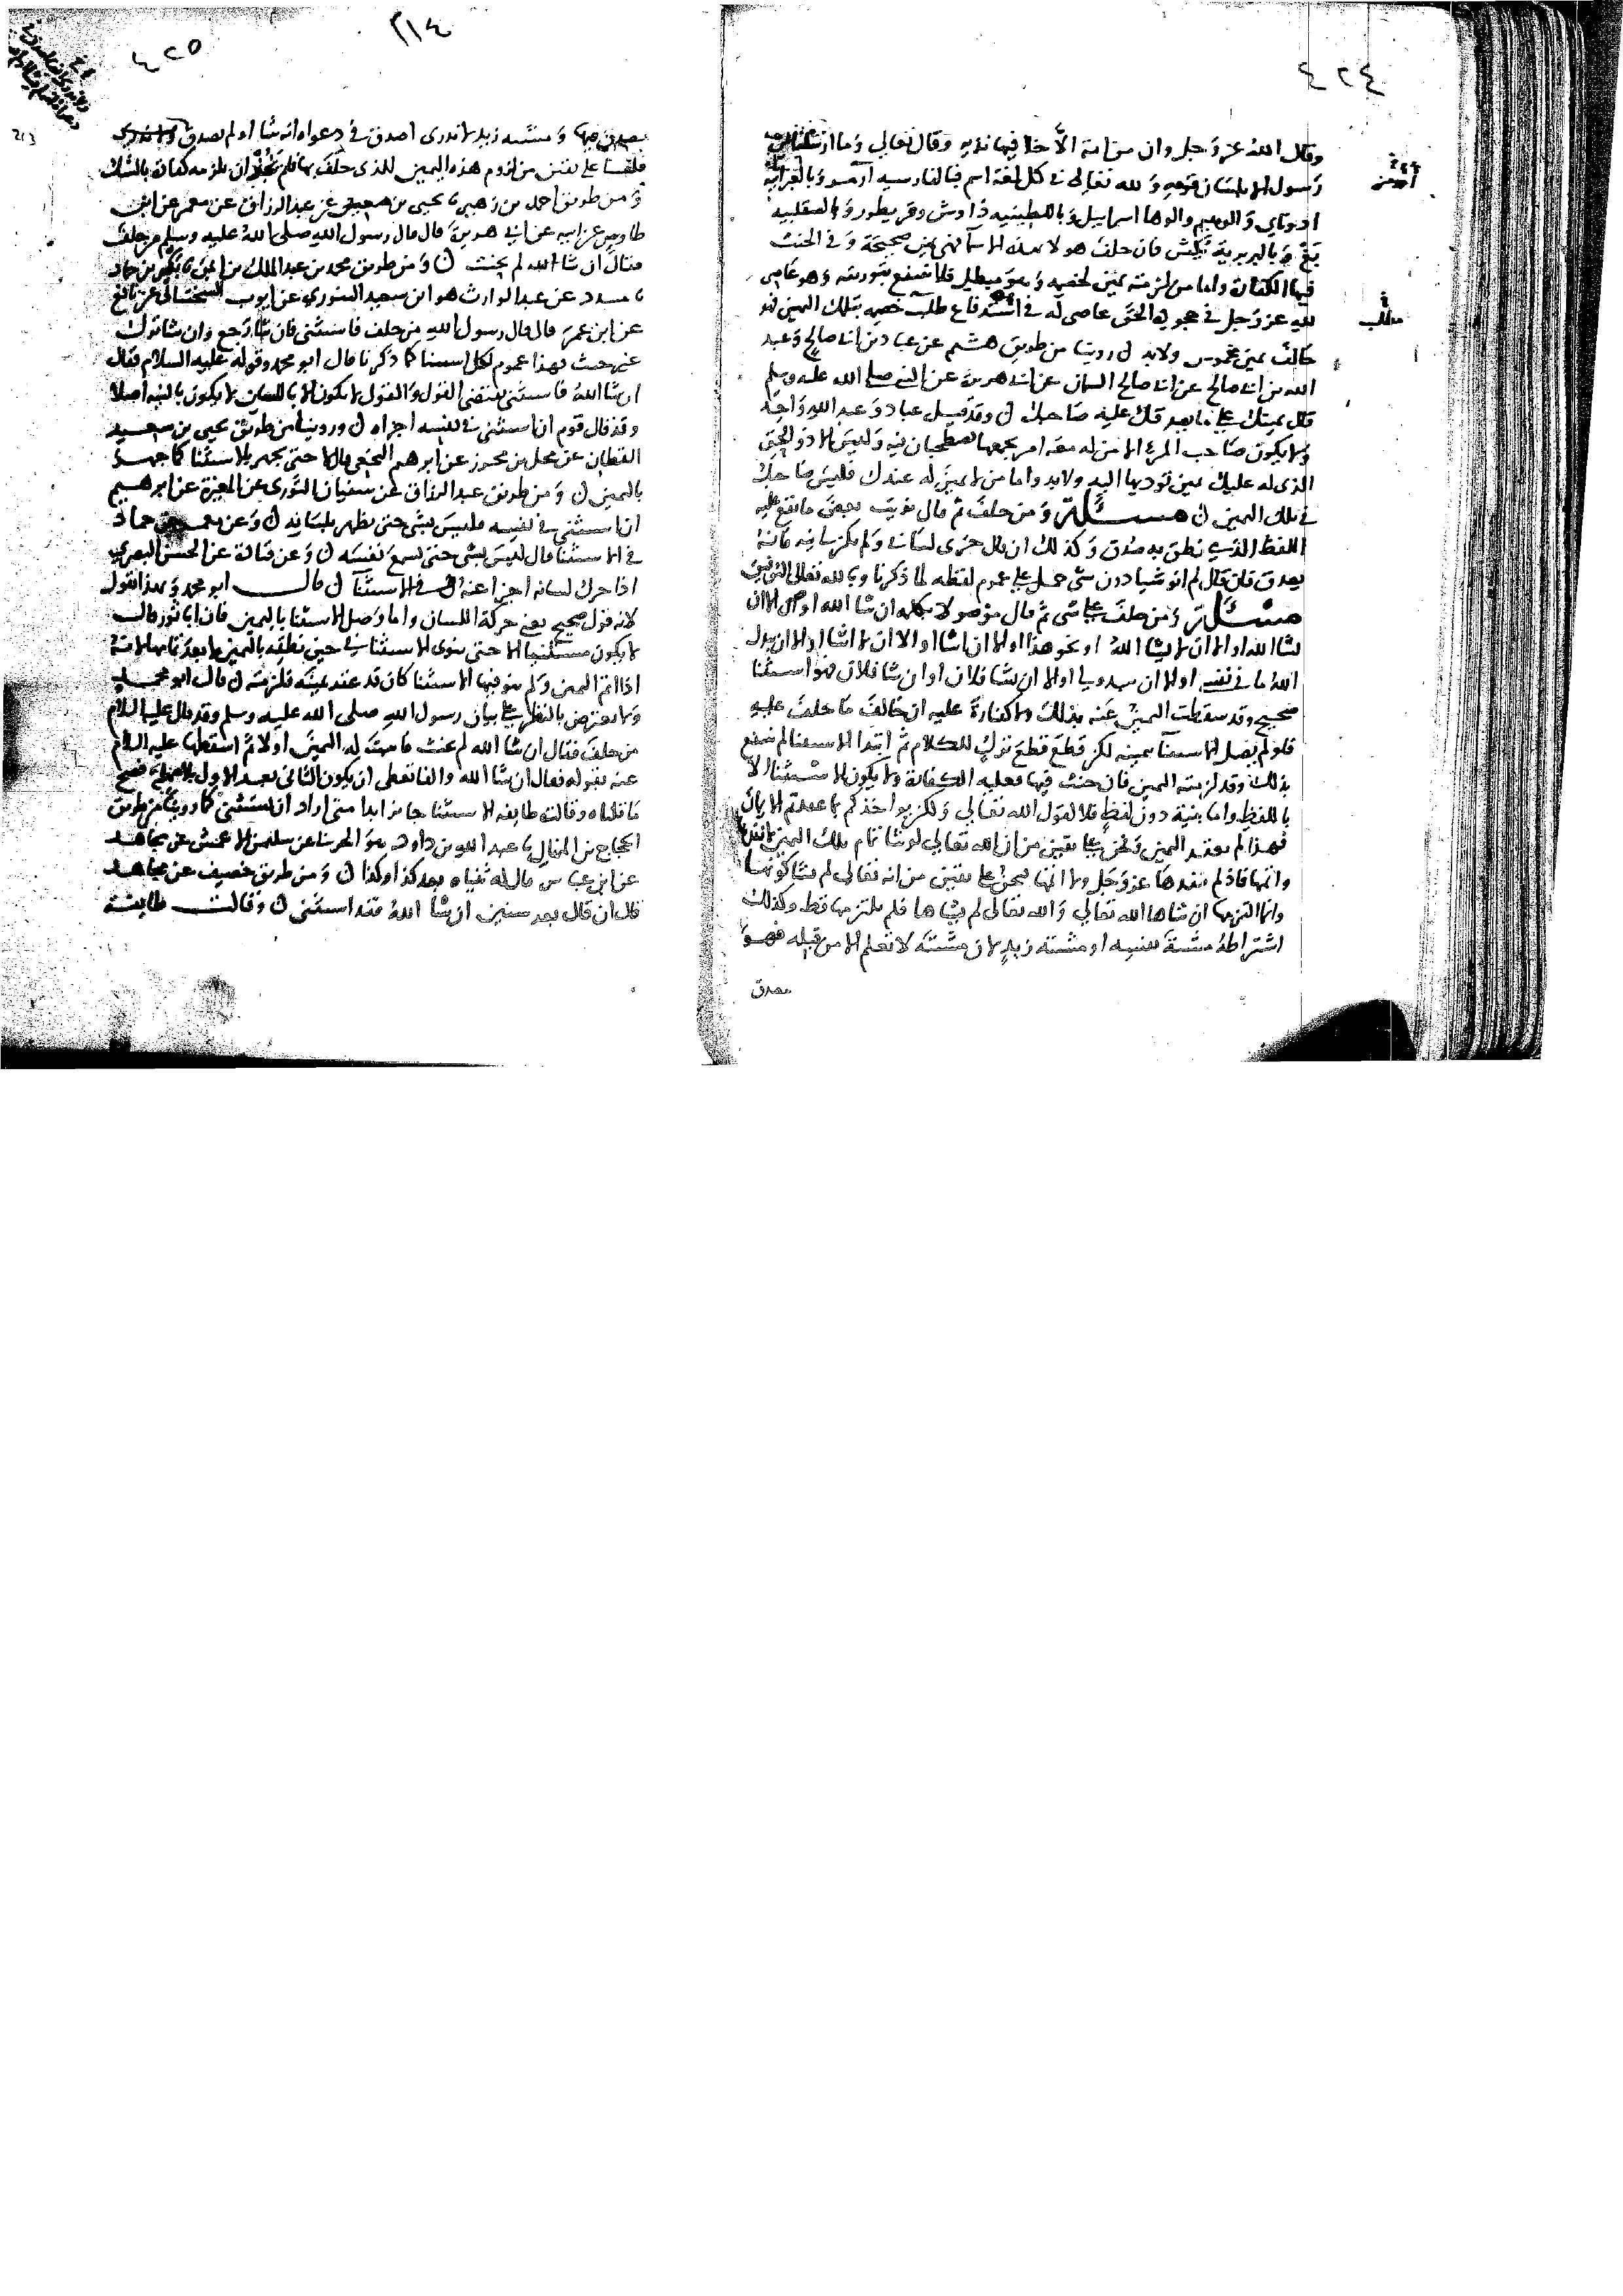 ٤٢٤
وقال الله عز وجل وان من امة الا خلا فيها نذير وقال تعالى وما ارسلنا من
رسول الا بلسان قومه ولله تعالى في كل لغة اسم فبالفارسيه وبالعبرانية
ادوناي والوهيم والوها اسراييل وباللطينيه داوش وقريطور وبالصقلبيه
بغ وبالبربرية يكش فان حلف هولا بهذه الاسما فهي يمين صحيحة وفي الحنث
فيها الكفارة واما من لزمته يمين لخصمه وهو مبطل فلا ينتفع بتوريته وهو عاصي
لله عز وجل في جحوده الحق عاصي له في استدفاع طلب خصمه بتلك اليمين فهو
حالف يمين غموس ولابد ن روينا من طريق هشيم عن عباد بن ابي صالح وعبد
الله بن ابي صالح عن ابي صالح السمان عن ابي هريرة عن النبي صلى الله عليه وسلم
قال يمينك على ما يصدقك عليه صاحبك ن وقد قيل عباد وعبد الله واحد
ولا يكون صاحب المرء الا من له معه امر يجمعهما يصطحبان فيه وليس الا ذو الحق
الذي له عليك يمين توديها اليه ولابد واما من لا يمين له عندك فليس صاحبك
في تلك اليمين ن مسئلة ومن حلف ثم قال نويت بعض ما يقع عليه
اللفظ الذي نطق به صدق وكذلك ان قال جرى لساني ولم يكن لي نيه فانه
يصدق فان قال لم انو شيا دون شي حمل على عموم لفظه لما ذكرنا وبالله تعالى التوفيق
مسئلة ومن حلف على شي ثم قال موصولا بكلامه ان شا الله او الا ان
يشا الله او الا ان لا يشا الله او نحو هذا او الا ان اشا او الا ان لا اشا او الا ان يبدل
الله ما في نفسي او الا ان يبدو لي او الا ان يشا فلان او ان شا فلان فهو استثنا
صحيح وقد سقطت اليمين عنه بذلك ولا كفارة عليه ان خالف ما حلف عليه
فلو لم يصل الاستثنا بيمينه لكن قطع قطع ترك للكلام ثم ابتدا الاستثنا لم ينتفع
بذلك وقد لزمته اليمين فان حنث فيها فعليه الكفارة ولا يكون الاستثنا الا
باللفظ واما بنية دون لفظ فلا لقول الله تعالى ولكن يواخذكم بما عقدتم الايمان
فهذا لم يعقد اليمين ونحن على يقين من ان الله تعالى لو شا تمام تلك اليمين لانفذها
واتمها فاذ لم ينفذها عز وجل ولا اتمها فنحن على يقين من انه تعالى لم يشا كونها
وانما التزمها ان شاها الله تعالى والله تعالى لم يشاها فلم يلتزمها قط وكذلك
اشتراطه مشيئة نفسه او مشيئة زيد لان مشيئته لا تعلم الا من قبله فهو
مصدق
مطلب
٤٢٥
٢١٤
213
يصدق فيها ومشيئة زيد لا ندري اصدق في دعواه انه شا او لم يصدق
فلسنا على يقين من لزوم هذه اليمين للذي حلف بها فلم يجز ان نلزمه كفارة بالشك
ومن طريق احمد بن زهير نا يحيى بن معين عن عبد الرزاق عن معمر عن ابن
طاوس عن ابيه عن ابي هريرة قال قال رسول الله صلى الله عليه وسلم من حلف
فقال ان شا الله لم يحنث ن ومن طريق محمد بن عبد الملك بن ايمن نا بكر بن حماد
نا مسدد عن عبد الوارث هو ابن سعيد التنوري عن ايوب السختياني عن نافع
عن ابن عمر قال قال رسول الله من حلف فاستثنى فان شا رجع وان شا ترك
غير حنث فهذا عموم لكل استثنا كما ذكرنا قال ابو محمد وقوله عليه السلام فقال
ان شا الله فاستثنى يقتضي القول والقول لا يكون الا باللسان لا يكون بالنيه اصلا
وقد قال قوم ان استثنى في نفسه اجزاه ن وروينا من طريق يحيى بن سعيد
القطان عن محل بن محرز عن ابرهيم النخعي قال لا حتى يجهر بالاستثنا كما جهر
باليمين ن ومن طريق عبد الرزاق عن سفيان الثوري عن المغيرة عن ابرهيم
ان استثنى في نفسه فليس بشي حتى يظهر بلسانه ن وعن حماد
في الاستثنا قال ليس بشي حتى يسمع نفسه ن وعن قتادة عن الحسن البصري
اذا حرك لسانه اجزا عنه في الاستثنا ن قال ابو محمد وبهذا نقول
لانه قول صحيح يعني حركة اللسان واما وصل الاستثنا باليمين فان ابا ثور قال
لا يكون مستثنيا الا حتى ينوي الاستثنا في حين نطقه باليمين لا بعد تمامها لانه
اذا اتم اليمين ولم ينو فيها الاستثنا كان قد عقد يمينه فلزمته ن قال ابو محمد
ولا يعترض بالنظر على بيان رسول الله صلى الله عليه وسلم وقد قال عليه السلام
من حلف فقال ان شا الله لم يحنث فاثبت له اليمين اولا ثم اسقطها عليه السلام
عنه بقوله فقال ان شا الله والفا تعطي ان يكون الثاني بعد الاول بلا مهلة فصح
ما قلناه وقالت طايفه الاستثنا جايز ابدا متى اراد ان يستثني كما روينا من طريق
الحجاج بن المنهال نا عبد الله بن داود هو الخريبي عن سليمن الاعمش عن مجاهد
عن ابن عباس قال له ثنياه بعد كذا وكذا ن ومن طريق خصيف عن مجاهد
قال ان قال بعد سنين ان شا الله فقد استثنى ن وقالت طايفة